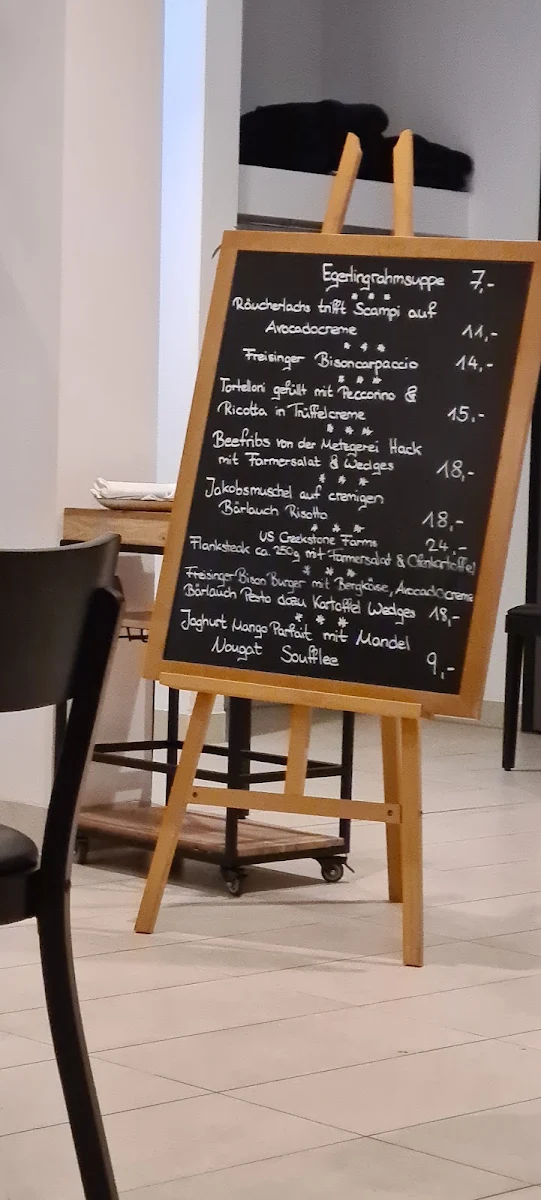 Egerlingrahmsuppe 7,-
* * *
Räucherlachs trifft Scampi auf
Avocadocreme 11,-
* * *
Freisinger Bisoncarpaccio 14,-
* * *
Tortelloni gefüllt mit Peccorino &
Ricotta in Trüffelcreme 15,-
* * *
Beefribs von der Metzgerei Hack
mit Farmersalat & Wedges 18,-
* * *
Jakobsmuschel auf cremigen
Bärlauch Risotto 18,-
* * *
US Creekstone Farms 24,-
Flanksteak ca. 250g mit Farmersalat & Ofenkartoffel
* * *
Freisinger Bison Burger mit Bergkäse, Avocadocreme
Bärlauch Pesto dazu Kartoffel Wedges 18,-
* * *
Joghurt Mango Parfait mit Mandel
Nougat Soufflee 9,-